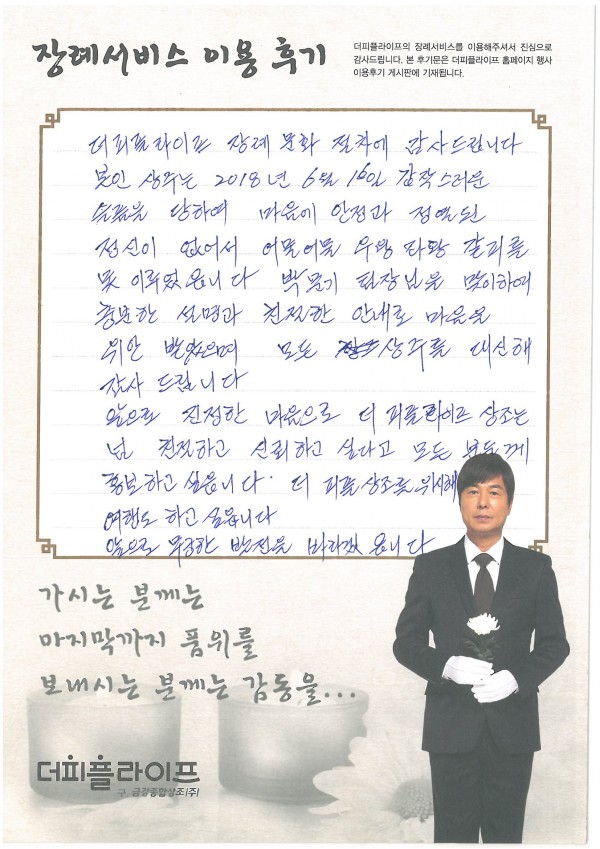 장례서비스 이용 후기
더피플라이프의 장례서비스를 이용해주셔서 진심으로
감사드립니다. 본 후기문은 더피플라이프 홈페이지 행사
이용후기 게시판에 기재됩니다.
더피플라이프 장례 문화 절차에 감사드립니다
본인 상주는 2018년 6월 16일 갑작스러운
슬픔을 당하여 마음에 안정과 정열된
정신이 없어서 어물어물 우왕 좌왕 갈피를
못 이루었읍니다 팀장님을 맞이하여
충분한 설명과 친절한 안내로 마음을
위안 받았으며 모든 상주를 대신해
감사 드립니다
앞으로 진정한 마음으로 더 피플라이프 상조는
넘 친절하고 신뢰하고 싶다고 모든 분들께
홍보하고 싶읍니다. 더 피플 상조를 위시해
여행도 하고 싶읍니다
앞으로 무궁한 발전을 바라겠읍니다
가시는 분께는
마지막까지 품위를
보내시는 분께는 감동을...
더피플라이프
구. 금강종합상조(주)